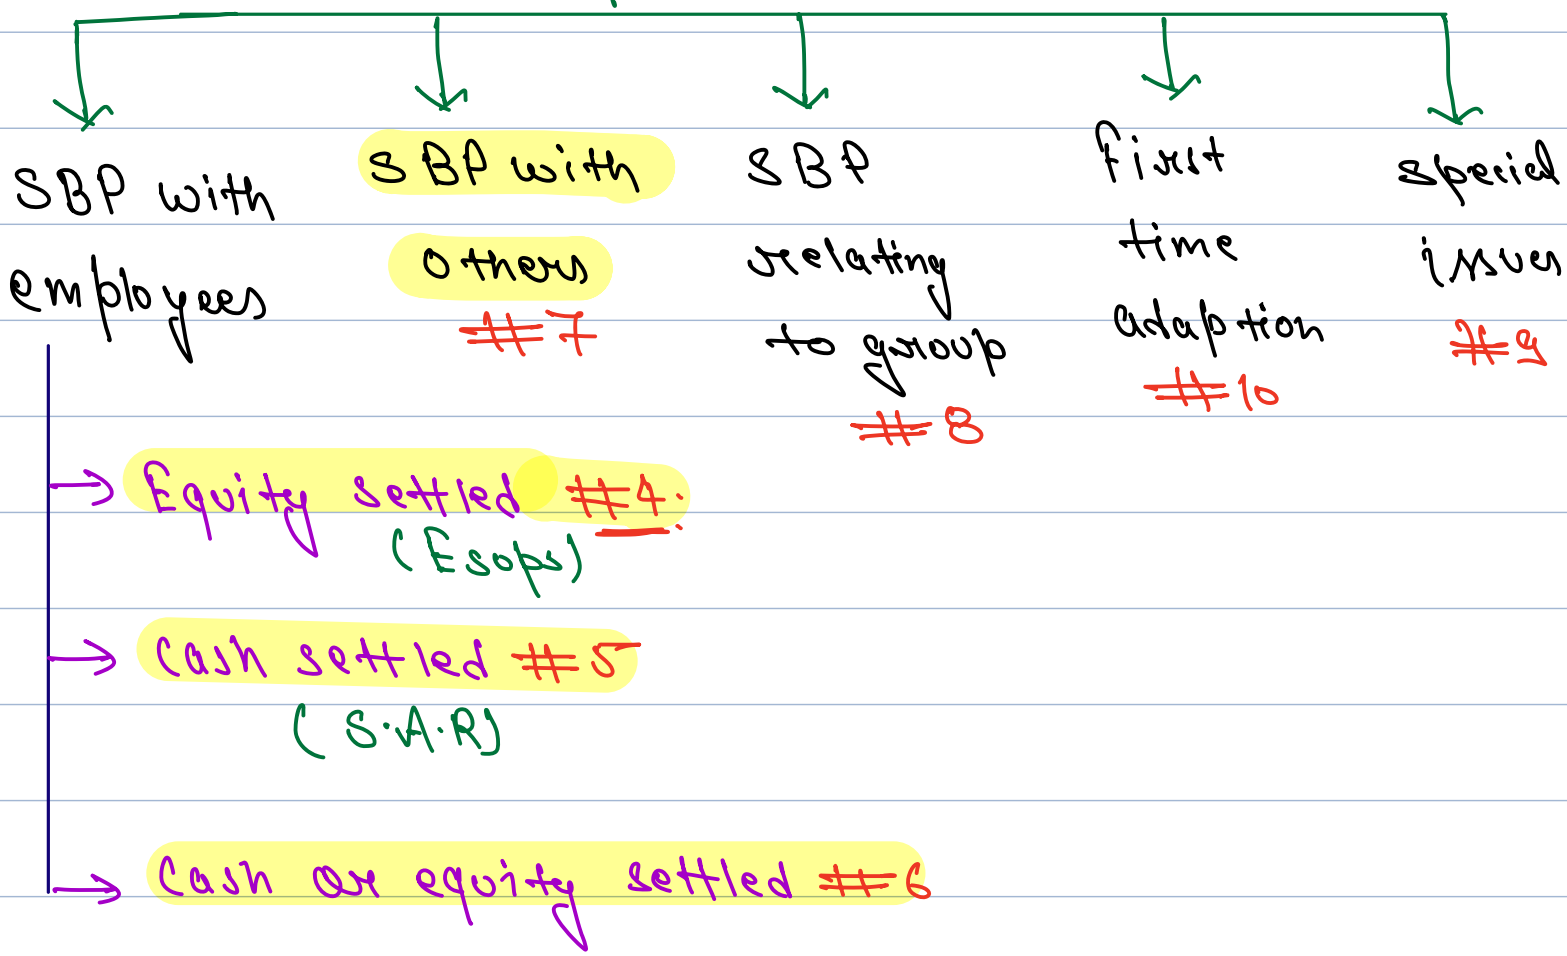 SBP with
employees
SBP with
others
#7
SBP
relating
to group
#8
First
time
adaption
#10
special
issues
#9
Equity settled #4:
(Esops)
Cash settled #5
(S.A.R)
Cash or equity settled #6